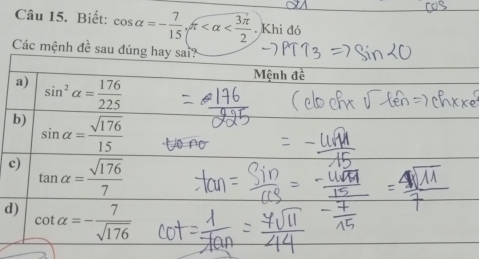 Câu 15. Biết: cos α = -7/15, π < α < 3π/2. Khi đó
cos
Các mệnh đề sau đúng hay sai?
→ PTT3 => sin < 0
Mệnh đề
a) sin² α = 176/225
= 176/225
b) sin α = √176/15
= -4√11/15
c) tan α = √176/7
tan = sin/cos = (-4√11/15)/(-7/15) = 4√11/7
d) cot α = -7/√176
cot = 1/tan = 7√11/44